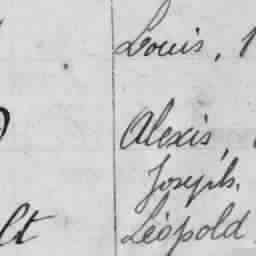 Louis, 1
Alexis,
Joseph.
lt Léopold